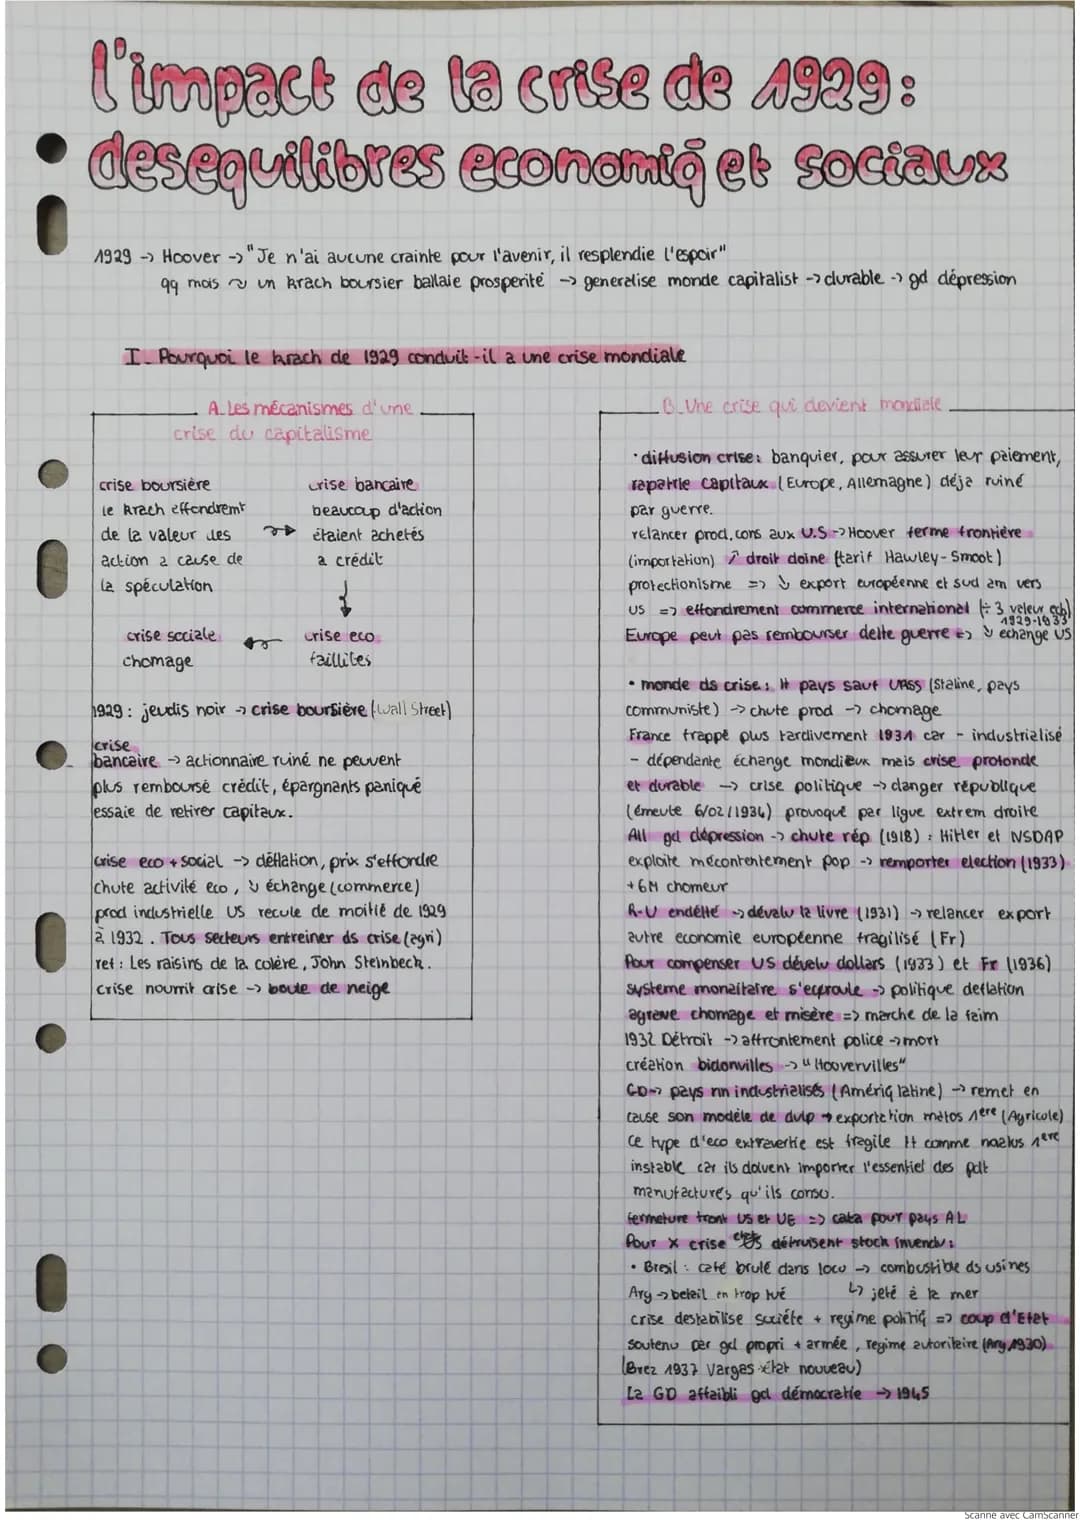 l'impact de la crise de 1929:
desequilibres economiq̄ et sociaux
1929 -> Hoover -> "Je n'ai aucune crainte pour l'avenir, il resplendie l'espoir"
qq mois ~ un krach boursier ballaie prosperité -> generalise monde capitalist -> durable -> gd dépression
I_ Pourquoi le krach de 1929 conduit-il a une crise mondiale
A_ Les mécanismes d'une
crise du capitalisme
crise boursière
le krach effondremt
de la valeur des
action a cause de
la spéculation
crise bancaire
beaucoup d'action
étaient achetés
a crédit
↓
crise sociale
chomage
crise eco
faillites
1929 : jeudis noir -> crise boursière (Wall Street)
crise
bancaire -> actionnaire ruiné ne peuvent
plus remboursé crédit, épargnants paniqué
essaie de retirer capitaux.
crise eco + social -> déflation, prix s'effondre
chute activité eco, ↘ échange (commerce)
prod industrielle US recule de moitié de 1929
à 1932. Tous secteurs entreiner ds crise (agri)
ref : Les raisins de la colère, John Steinbeck.
crise nourrit crise -> boule de neige
B_ Une crise qui devient mondiale
• diffusion crise : banquier, pour assurer leur paiement,
rapatrie capitaux (Europe, Allemagne) déjà ruiné
par guerre.
relancer prod, cons aux U.S -> Hoover ferme frontière
(importation) ↗ droit doine (tarif Hawley-Smoot)
protectionisme => ↘ export européenne et sud am vers
US => effondrement commerce international (÷ 3 valeur ech)
1929-1933
Europe peut pas rembourser dette guerre => ↘ echange US
• monde ds crise : tt pays sauf URSS (Staline, pays
communiste) -> chute prod -> chomage
France frappé plus tardivement 1931 car - industrialisé
- dépendante échange mondieux mais crise profonde
et durable -> crise politique -> danger république
(émeute 6/02/1934) provoqué par ligue extrem droite
All gd dépression -> chute rép (1918) : Hitler et NSDAP
exploite mécontentement pop -> remporter election (1933)
+6M chomeur
R-U endetté -> dévalu la livre (1931) -> relancer export
autre economie européenne fragilisé (Fr)
Pour compenser US dévelu dollars (1933) et Fr (1936)
systeme monaitaire s'ecproule -> politique deflation
agrave chomage et misère => marche de la faim
1932 Détroit -> affrontement police -> mort
création bidonvilles -> "Hoovervilles"
GD -> pays nn industrialisés (Amériq latine) -> remet en
cause son modèle de dvlp -> exportation matos 1ère (Agricole)
ce type d'eco extravertie est fragile tt comme 1ere
instable car ils doivent importer l'essentiel des pdt
manufacturés qu'ils conso.
fermeture front US et UE => cata pour pays AL
Pour X crise détruisent stock invendu :
• Bresil : café brulé dans loco -> combustible ds usines
↳ jeté à la mer
Arg -> betail en trop tué
crise destabilise société + regime politiq => coup d'Etat
soutenu par gd propri + armée, regime autoritaire (Arg, 1930)
(Brez 1937 Vargas état nouveau)
La GD affaibli gd démocratie -> 1945
Scanné avec CamScanner